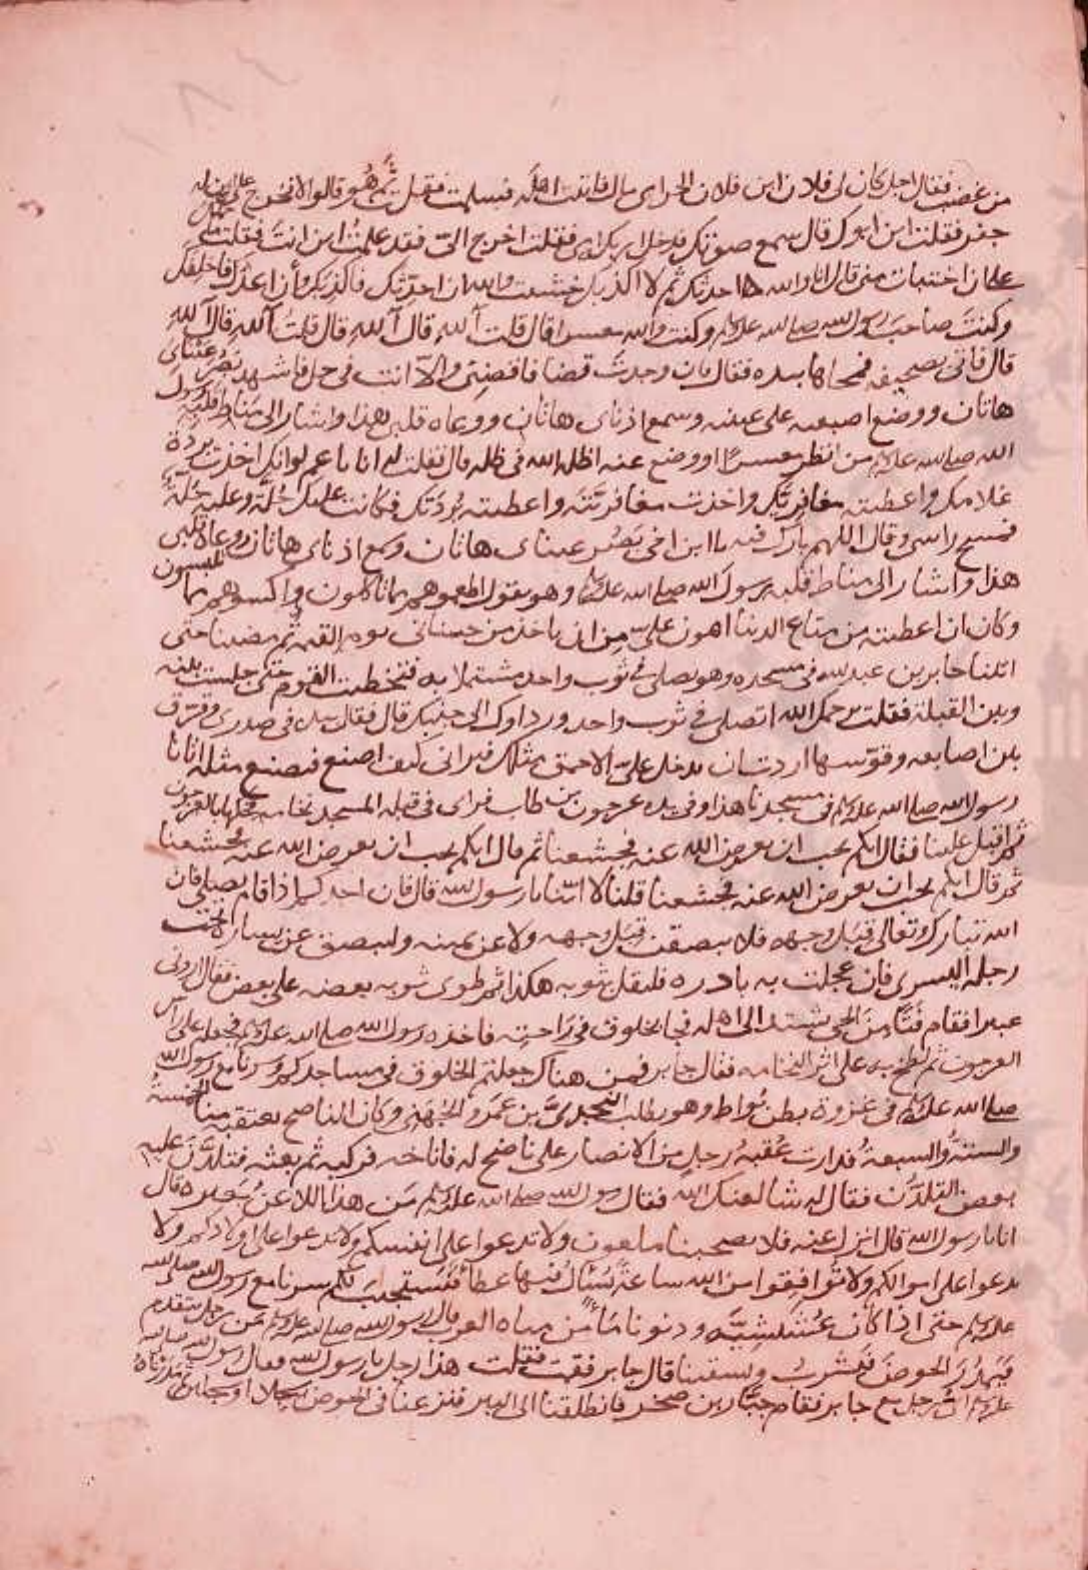 من غضب فقال اجل كان لى فلان ابن فلان الحرامى مال فاتيت اهله فسلمت فقلت ثَمَّ هُو قالوا لا فخرج على ابن له
جفر فقلت اين ابوك قال سمع صوتك فدخل اريكة امى فقلت اخرج الىّ فقد علمتُ اين انتَ فخرج فقلت ما حملك
على ان اختبات منى قال انا والله احدثك ثم لا اكذبك خشيت والله ان احدّثك فاكذبك وأن اعدك فاخلفك
وكنتَ صاحبَ رسول الله صلى الله عليه وسلم وكنت والله معسرا قال قلت آلله قال آلله قال قلتُ آلله قال آلله
قال فاتى بصحيفه فمحاها بيده فقال فان وجدتَ قضا فاقضنى والّا انت فى حل فاشهد بَصُر عيناى
هاتان ووضع اصبعيه على عينيه وسمع اذناى هاتان ووعاه قلبى هذا واشار الى مناط قلبه رسولَ
الله صلى الله عليه وسلم من انظر معسرًا او وضع عنه اظله الله فى ظله قال فقلت له انا يا عم لو انك اخذت بردة
غلامك واعطيته معافريّك واخذت معافريّته واعطيته بُردتك فكانت عليك حُلّة وعليه حُلّة
فمسح راسى وقال اللهم بارك فيه يا ابن اخى بَصُر عيناى هاتان وسمع اذناى هاتان ووعاه قلبى
هذا واشار الى مناط قلبه رسولَ الله صلى الله عليه وسلم وهو يقول اطعموهم مما تاكلون واكسوهم مما تلبسون
وكان ان اعطيته من متاع الدنيا اهون علىّ من ان ياخذ من حسناتى يوم القيمة ثم مضينا حتى
اتينا جابر بن عبد الله فى مسجده وهو يصلى فى ثوب واحد مشتملا به فتخطيت القوم حتى جلست بينه
وبين القبلة فقلت يرحمك الله اتصلى فى ثوب واحد ورداوك الى جنبك قال فقال بيده فى صدرى وفرق
بين اصابعه وقوّسها اردت ان يدخل علىّ الاحمق مثلك فيرانى كيف اصنع فيصنع مثله اتانا
رسول الله صلى الله عليه وسلم فى مسجدنا هذا وفى يده عرجون بن طاب فراى فى قبلة المسجد نخامه فحكها بالعرجون
ثم اقبل علينا فقال ايكم يحب ان يعرض الله عنه فخشعنا ثم قال ايكم يحب ان يعرض الله عنه فخشعنا
ثم قال ايكم يحب ان يعرض الله عنه فخشعنا قلنا لا اينا يا رسول الله قال فان احدكم اذا قام يصلى فان
الله تبارك وتعالى قِبَل وجهه فلا يبصقن قِبَل وجهه ولا عن يمينه وليبصق عن يساره تحت
رجله اليسرى فان عجلت به بادره فليقل بثوبه هكذا ثم طوى ثوبه بعضه على بعض فقال ارونى
عبيرا فقام فتًا من الحى يشتد الى اهله فجا بخلوق فى راحته فاخذه رسول الله صلى الله عليه وسلم فجعله على راس
العرجون ثم لطخ به على اثر النخامه فقال جابر فمن هناك جعلتم الخلوق فى مساجدكم وسرنا مع رسول الله
صلى الله عليه وسلم فى غزوة بطن بُواط وهو يطلب المجدىّ بن عمرو الجُهنى وكان الناضح يعتقبه منا الخمسةُ
والستةُ والسبعةُ فدارت عُقبةُ رجلٍ من الانصار على ناضح له فاناخه فركبه ثم بعثه فتلدّن عليه
بعض التلدّن فقال له شا لعنك الله فقال رسول الله صلى الله عليه وسلم مَن هذا اللاعنُ بَعيره قال
انا يا رسول الله قال انزل عنه فلا يصحبنا ملعون ولا تدعوا على انفسكم ولا تدعوا على اولادكم ولا
تدعوا على اموالكم ولا توافقوا من الله ساعة يُسئالُ فيها عطأً فيستجيب لكم سرنا مع رسول الله صلى الله
عليه وسلم حتى اذا كان عُشَيشِيَةٌ ودنونا مأً من مياه العرب قال رسول الله صلى الله عليه وسلم مَن رجل يتقدم
فيَمدُرَ الحوض فيَشرب ويسقينا قال جابر فقمت فقلت هذا رجل يا رسول الله فقال رسول الله صلى الله
عليه وسلم اىُّ رجل مع جابر فقام جبّار بن صخر فانطلقنا الى البير فنزعنا فى الحوض سجلا او سجلين ثم مدرناه